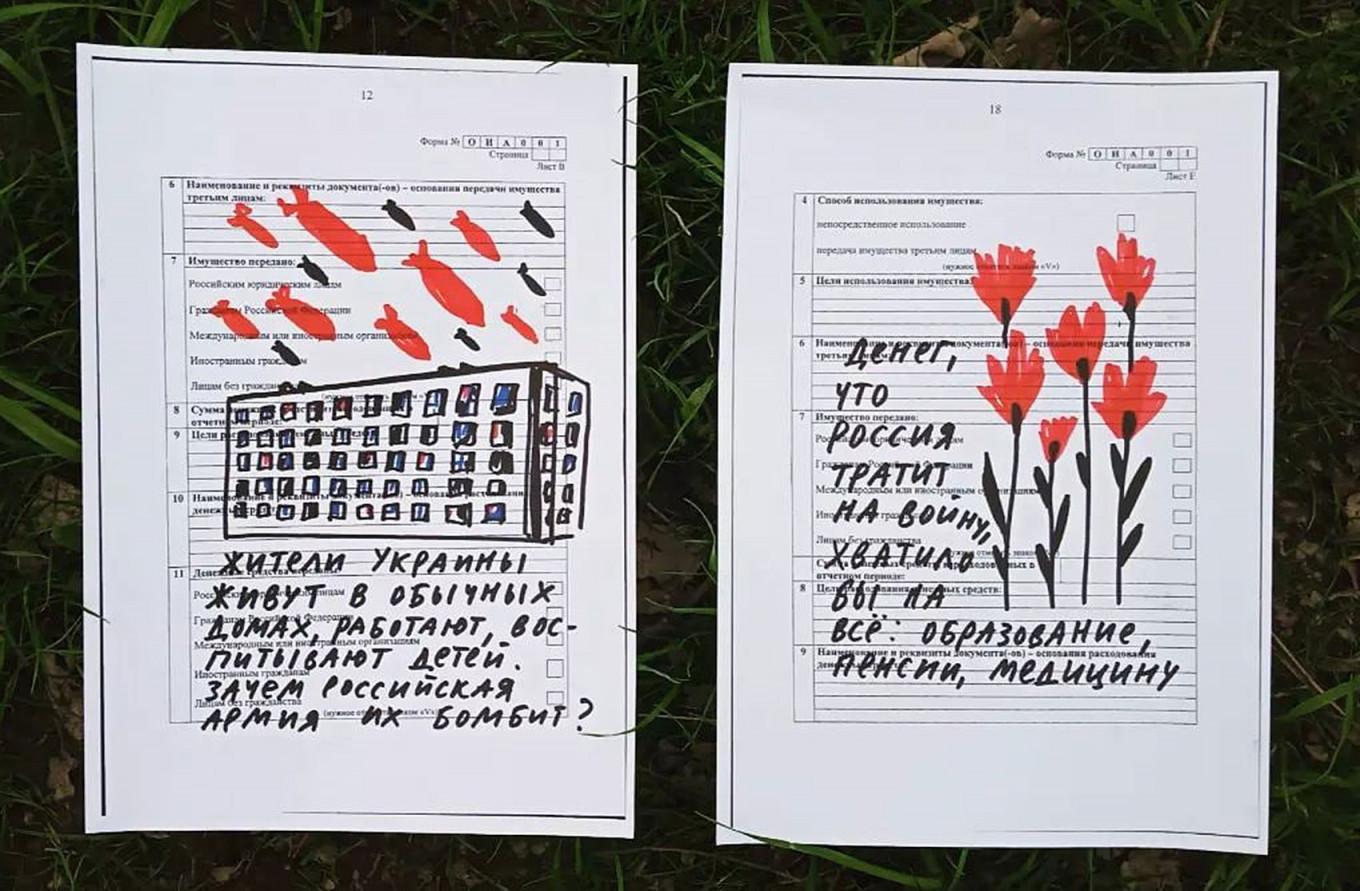 12
Форма № О И А 0 0 1
Страница
Лист В
6 Наименование и реквизиты документа(-ов) – основания передачи имущества
третьим лицам:
7 Имущество передано:
Российским юридическим лицам
Гражданам Российской Федерации
Международным или иностранным организациям
Иностранным гражданам
Лицам без гражданства
8 Сумма
отчетном периоде:
9 Цели
10 Наименование и реквизиты документа(-ов) – основания расходования
денежных средств:
ЖИТЕЛИ УКРАИНЫ
11
ЖИВУТ В ОБЫЧНЫХ
ДОМАХ, РАБОТАЮТ, ВОС-
Международным или иностранным организациям
ПИТЫВАЮТ ДЕТЕЙ.
Иностранным гражданам
ЗАЧЕМ РОССИЙСКАЯ
Лицам без гражданства
АРМИЯ ИХ БОМБИТ?
18
Форма № О И А 0 0 1
Страница
Лист Е
4 Способ использования имущества:
непосредственное использование
передача имущества третьим лицам
(нужное отметить знаком «V»)
5 Цели использования имущества:
6 Наименование и реквизиты документа(-ов) – основания передачи имущества
третьим лицам:
ДЕНЕГ,
ЧТО
7 Имущество передано:
РОССИЯ
ТРАТИТ
Международным или иностранным организациям
НА ВОЙНУ,
Лицам без гражданства
ХВАТИЛО
отчетном периоде:
8 Цели расходования денежных средств:
БЫ НА
ВСЁ: ОБРАЗОВАНИЕ,
9 Наименование и реквизиты документа(-ов) – основания расходования
ПЕНСИИ, МЕДИЦИНУ